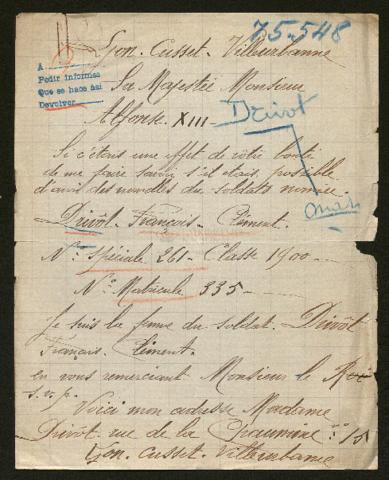 75.548
Lyon. Cusset. Villeurbanne
A
Pedir informes
Que se hace así
Devolver
Sa Majestée Monsieur
Alfonse XIII
Drivot
Si c'étais une effet de vôtre bonté
de me faire savoir s'il étais possible
d'avoir des nouvelles du soldats nommé
Drivôt. François. Clément.
N° Spéciale 261 - Classe 1900
N° Matricule 335
Je suis la femme du soldat. Drivôt
François. Clément.
en vous remerciant Monsieur le Roi
s.v.p.
Voici mon adresse Madame
Drivôt. rue de la 15
Lyon. Cusset. Villeurbanne